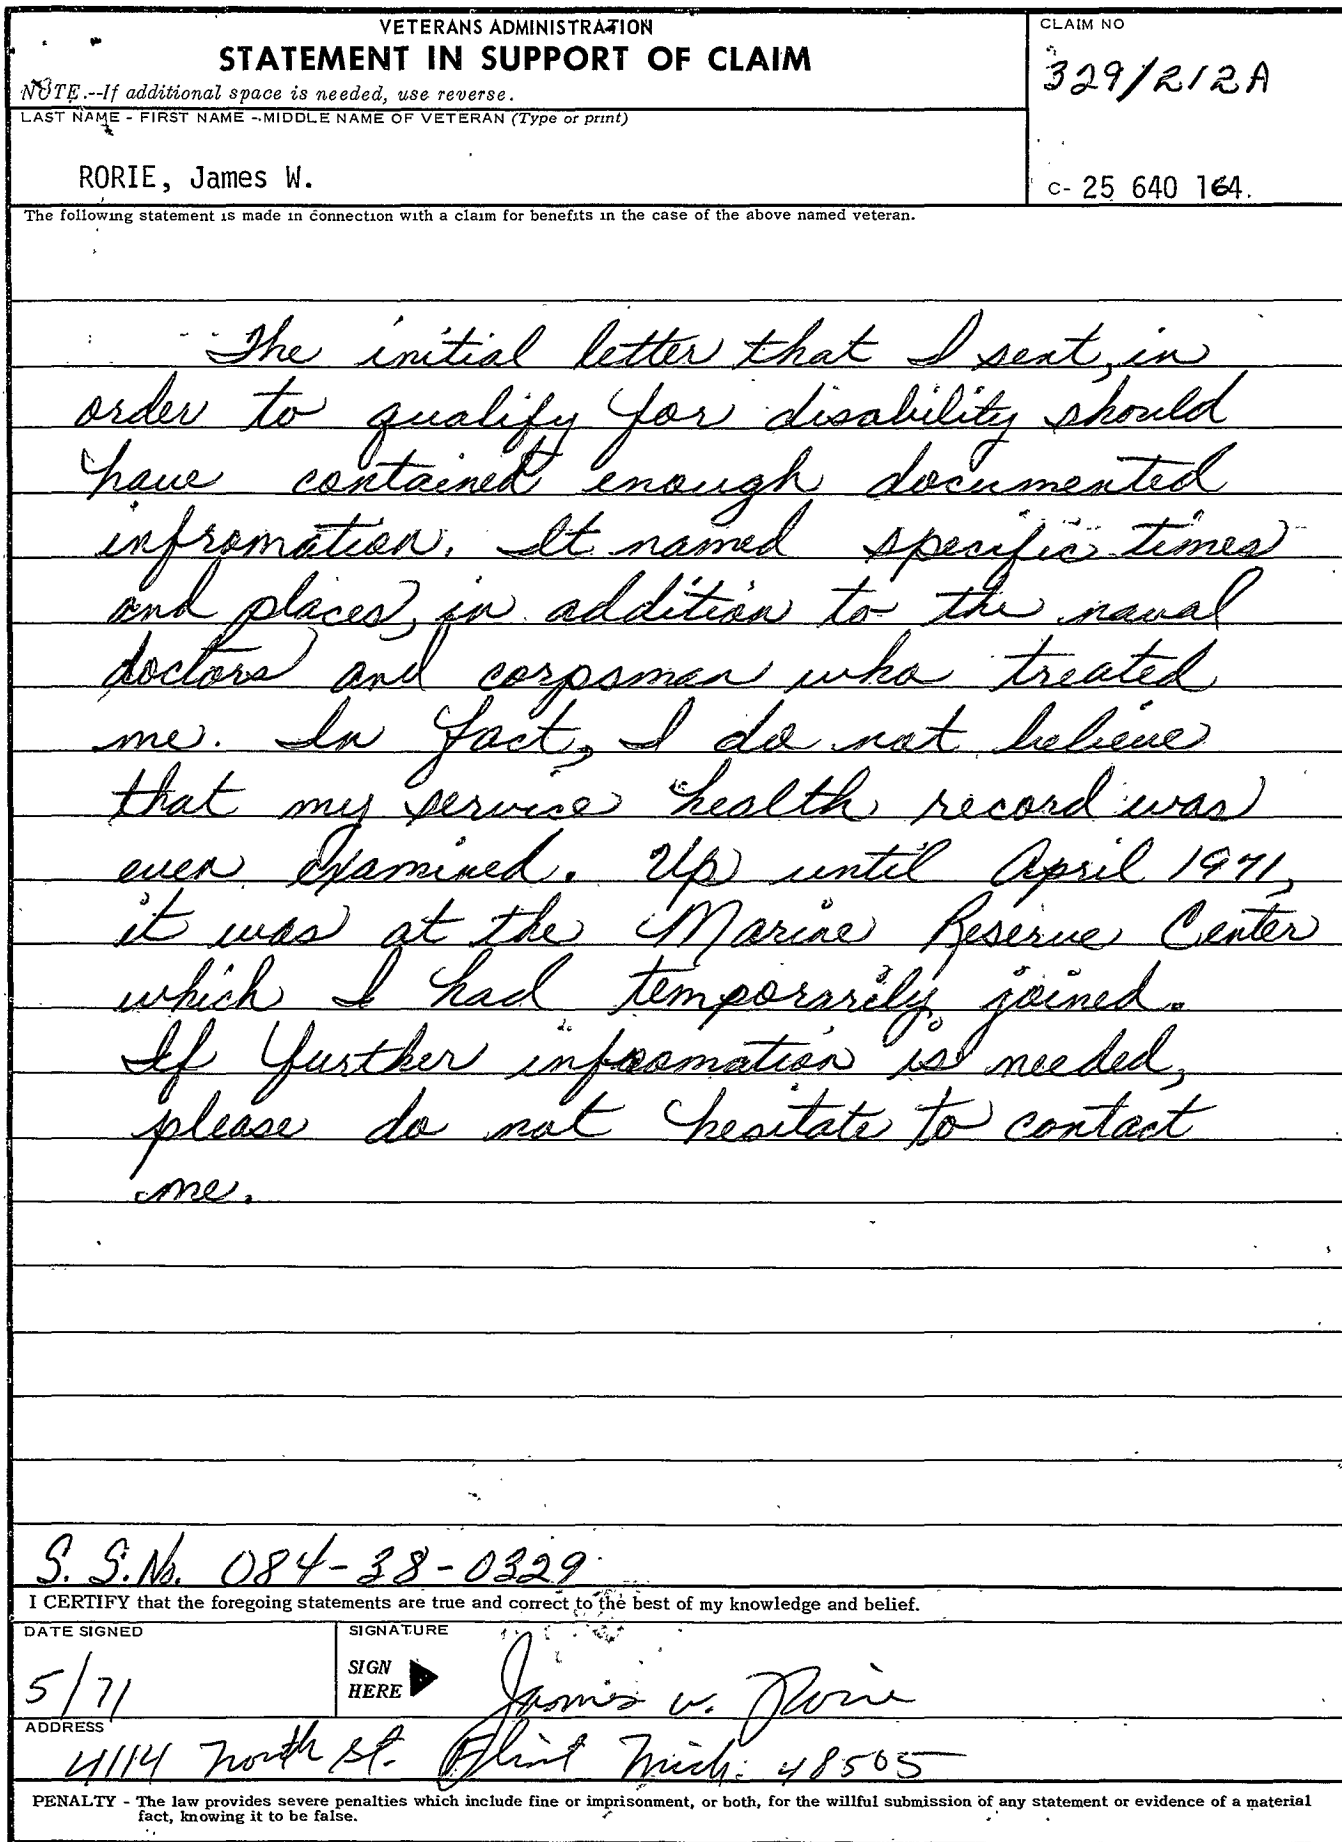 VETERANS ADMINISTRATION
STATEMENT IN SUPPORT OF CLAIM
NOTE.--If additional space is needed, use reverse.
CLAIM NO
329/212A
LAST NAME - FIRST NAME - MIDDLE NAME OF VETERAN (Type or print)
RORIE, James W.
C- 25 640 164.
The following statement is made in connection with a claim for benefits in the case of the above named veteran.
The initial letter that I sent, in
order to qualify for disability should
have contained enough documented
infromation. It named specific times
and places, in addition to the naval
doctors and corpsman who treated
me. In fact, I do not believe
that my service health record was
even examined. Up until April 1971,
it was at the Marine Reserve Center
which I had temporarily joined.
If further information is needed,
please do not hesitate to contact
me.
S. S. No. 084-38-0329
I CERTIFY that the foregoing statements are true and correct to the best of my knowledge and belief.
DATE SIGNED
5/71
SIGNATURE
SIGN
HERE
James W. Rorie
ADDRESS
4114 North St. Flint Mich. 48505
PENALTY - The law provides severe penalties which include fine or imprisonment, or both, for the willful submission of any statement or evidence of a material
fact, knowing it to be false.